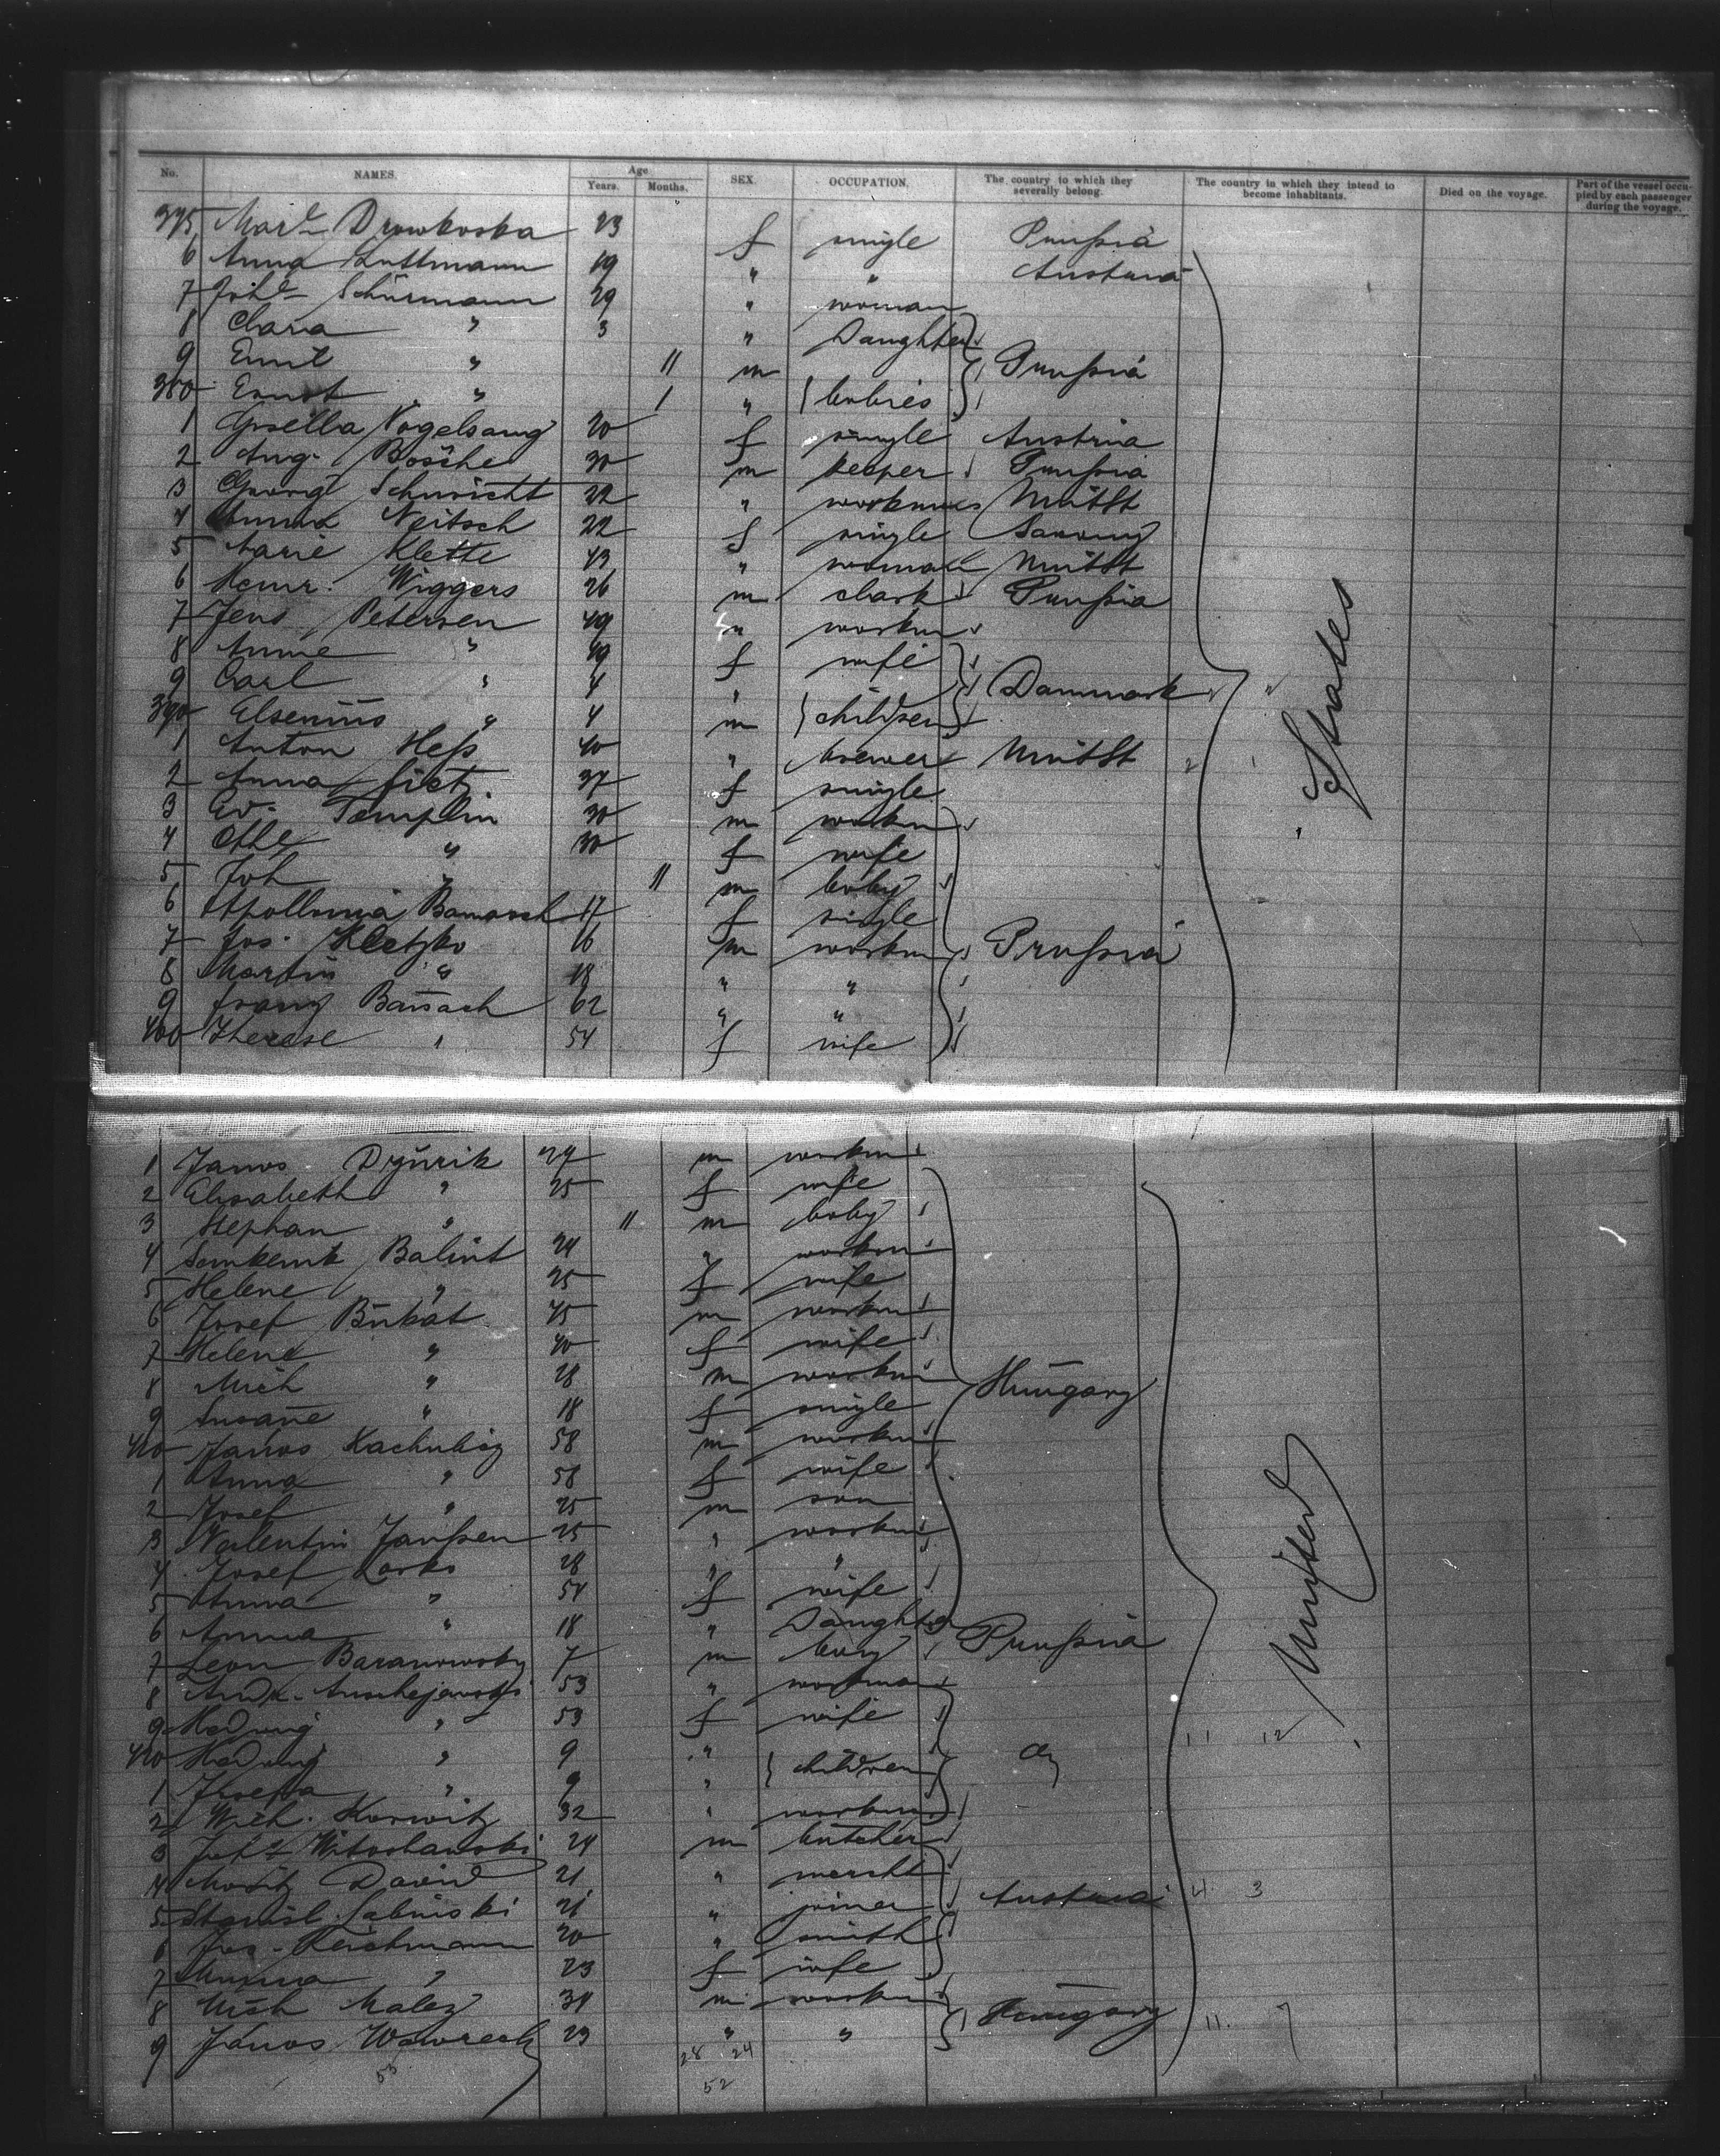 No. NAMES. Age Years. Months. SEX. OCCUPATION. The country to which they severally belong. The country in which they intend to become inhabitants. Died on the voyage. Part of the vessel occupied by each passenger during the voyage.
375 Marie Drowkoska 23 f single Prußia
6 Anna Luttmann 19 " " Austria
7 Joh. Schürmann 29 " woman
8 Clara " 3 " Daughter
9 Emil " 11 m Prußia
380 Ernst " 1 " babies
1 Gisella Vogelsang 20 f single Austria
2 Aug. Bosche 30 m keeper Prußia
3 Georg Schuricht 22 " workm UnitSt
4 Anna Neitsch 22 f single Saxony
5 Marie Klette 43 " woman UnitSt
6 Heinr. Wiggers 26 m clark Prußia
7 Jens Petersen 49 m workm
8 Anne " 49 f wife
9 Carl " 4 " Danmark
390 Elsenius " 4 m children
1 Anton Heß 40 " brewer UnitSt
2 Anna 37 f single
3 Ed. Templin 30 m workm
4 Otle " 30 f wife
5 Joh " 11 m baby
6 Apollonia 17 f single
7 Jos. Kletzko 16 m workm Prußia
8 Martin " 18 " "
9 Franz Banach 62 " "
400 Therese " 54 f wife
States
1 Janos Dzurik 24 m workm
2 Elisabeth " 25 f wife
3 Stephan " 11 m baby
4 Balint 24 " workm
5 Helene " 25 f wife
6 Josef Bukat 45 m workm
7 Helene " 40 f wife
8 Mich " 28 m workm Hungary
9 Susane " 18 f single
410 Janos 58 m workm
1 Anna " 58 f wife
2 Josef " 25 m son
3 Valentin Janßen 25 " workm
4 Josef Lorko 28 " "
5 Anna " 54 f wife
6 Anna " 18 " Daughter
7 Leon Baranowsky 7 m boy Prußia
8 Andr. 53 " workman
9 Hedwig " 53 f wife 11 12
420 Hedwig " 9 " children
1 Josefa " 9 "
2 Korwitz 32 " workm
3 24 m butcher
4 Moritz David 21 " mercht
5 Stanisl. Sabinski 21 " joiner Austria 4 3
6 Jos. 20 " smith
7 " 23 f wife
8 Mich Malez 31 m workm
9 Janos 23 " " Hungary 11 7
United
28 24
53
52